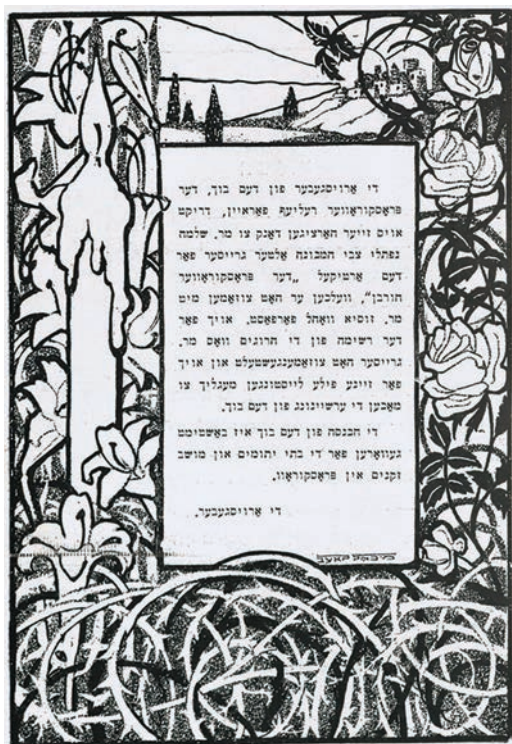 די ארויסגעבער פון דעם בוך, דער
פּראָסקוראָווער רעליעף פאַראיין, דריקט
אויס זייער הארציגען דאַנק צו מר. שלמה
נפתלי צבי המכונה אַלטער גרייסער פאר
דעם אַרטיקעל „דער פּראָסקוראָווער
חורבן", וועלכען ער האָט צוזאַמען מיט
מר. זוסיא וואָהל פאַרפאַסט. אויך פאר
דער רשימה פון די הרוגים וואָס מר.
גרייסער האָט צוזאַמענגעשטעלט און אויך
פאר זיינע פילע לייסטונגען מעגליך צו
מאַכען די ערשיינונג פון דעם בוך.
די הכנסה פון דעם בוך איז באַשטימט
געוואָרען פאר די בתי יתומים און מושב
זקנים אין פּראָסקוראָוו.
די ארויסגעבער.